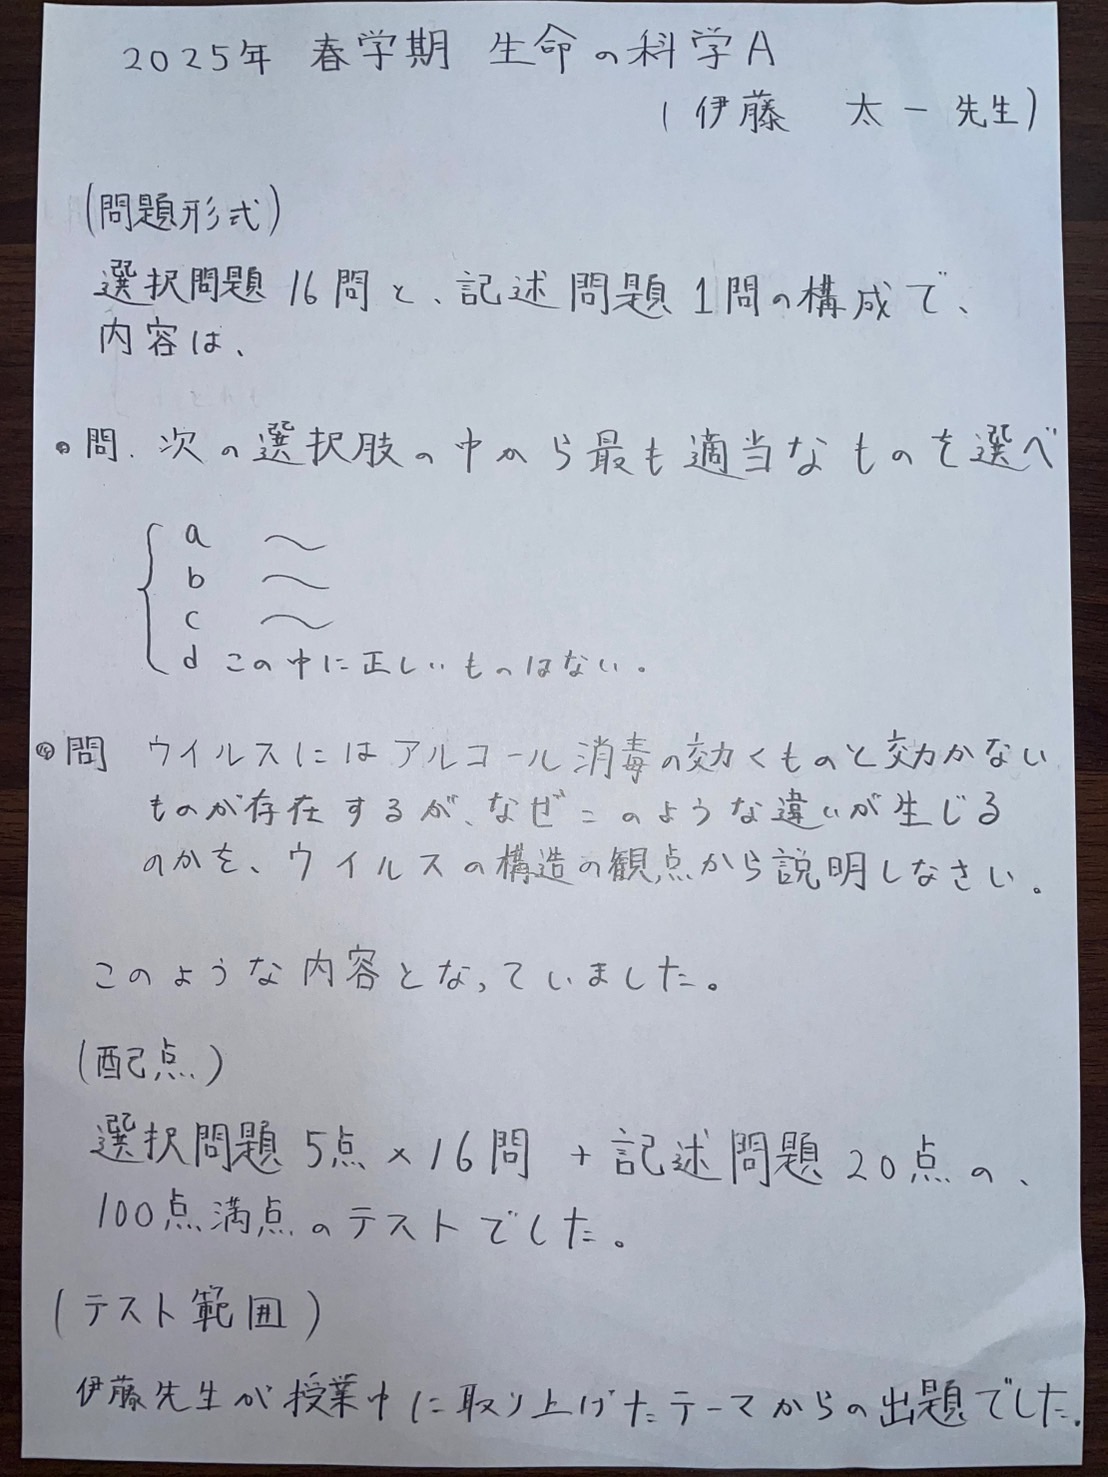 2025年 春学期 生命の科学A
(伊藤 太一先生)
(問題形式)
選択問題 16問と、記述問題 1問の構成で、
内容は、
・問. 次の選択肢の中から最も適当なものを選べ
a 〜
b 〜
c 〜
d この中に正しいものはない。
・問 ウイルスにはアルコール消毒の効くものと効かない
ものが存在するが、なぜこのような違いが生じる
のかを、ウイルスの構造の観点から説明しなさい。
このような内容となっていました。
(配点)
選択問題 5点×16問 + 記述問題 20点の、
100点満点のテストでした。
(テスト範囲)
伊藤先生が授業中に取り上げたテーマからの出題でした.